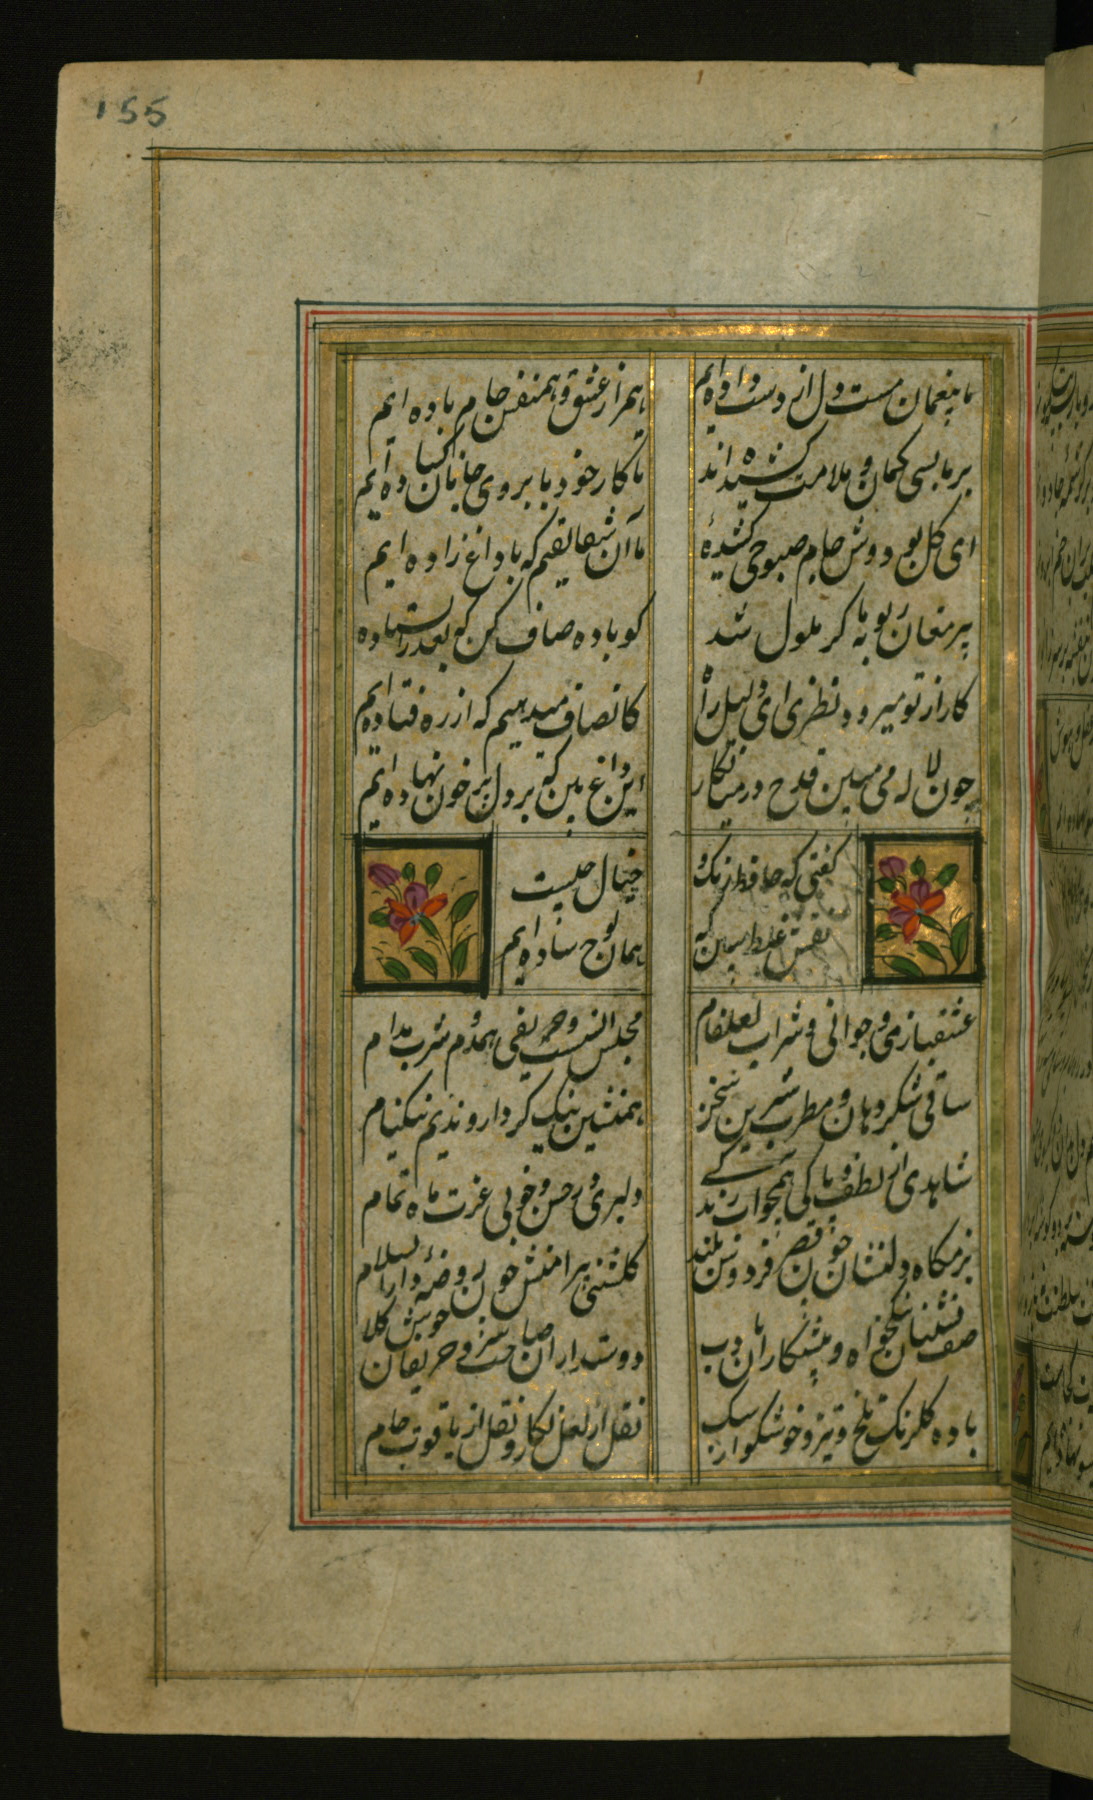 155
ما بیغمان مست دل از دست داده ایم
همراز عشق و همنفس جام باده ایم
بر ما بسی کمان ملامت کشیده اند
تا کار خود با بروی جانان کشاده ایم
ای کل تو دوش جام صبوحی کشیدۀ
ما آن شقایقیم که با داغ زاده ایم
پیر مغان ز توبه ما کر ملول شد
کو باده صاف کن که بعذر ایستاده
کار از تو میرود نظری ای دلیل راه
کانصاف میدهیم که از ره فتاده ایم
چون لاله می مبین قدح در میان کار
این داغ بین که بر دل پر خون نهاده ایم
کفتی که حافظ این همه رنک و
خیال چیست
نقش غلط مبین که
همان لوح ساده ایم
عشقبازی و جوانی و شراب لعلفام
مجلس انس و حریف همدم و شرب مدام
ساقی شکر دهان و مطرب شیرین سخن
همنشین نیک کردار و ندیم نیکنام
شاهدی از لطف و پاکی همچو آب زندکی
دلبری در حسن و خوبی غیرت ماه تمام
بزمکاه دلنشان چون قصر فردوس بلند
کلشنی پیرامنش چون روضۀ دارالسلام
صف نشینان نیکخواه و پیشکاران با ادب
دوستداران صاحب سر و حریفان خوش کلام
باده کلرنک تلخ و تیز و خوشکوار سبک
نقل از لعل نکار و نقل از یاقوت جام